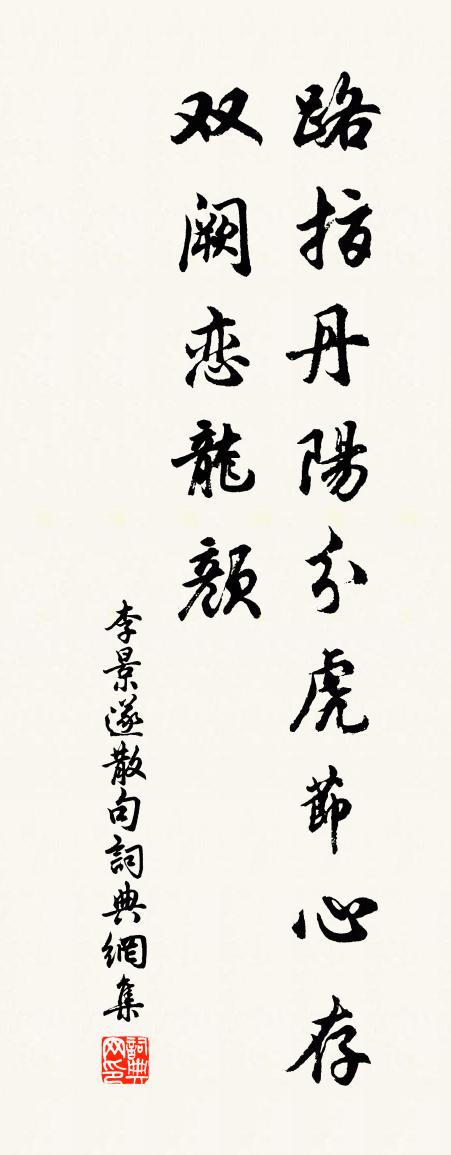 路指丹陽分虎節心存
双阙恋龍颜
李景遂散句詞典網集
詞典网印